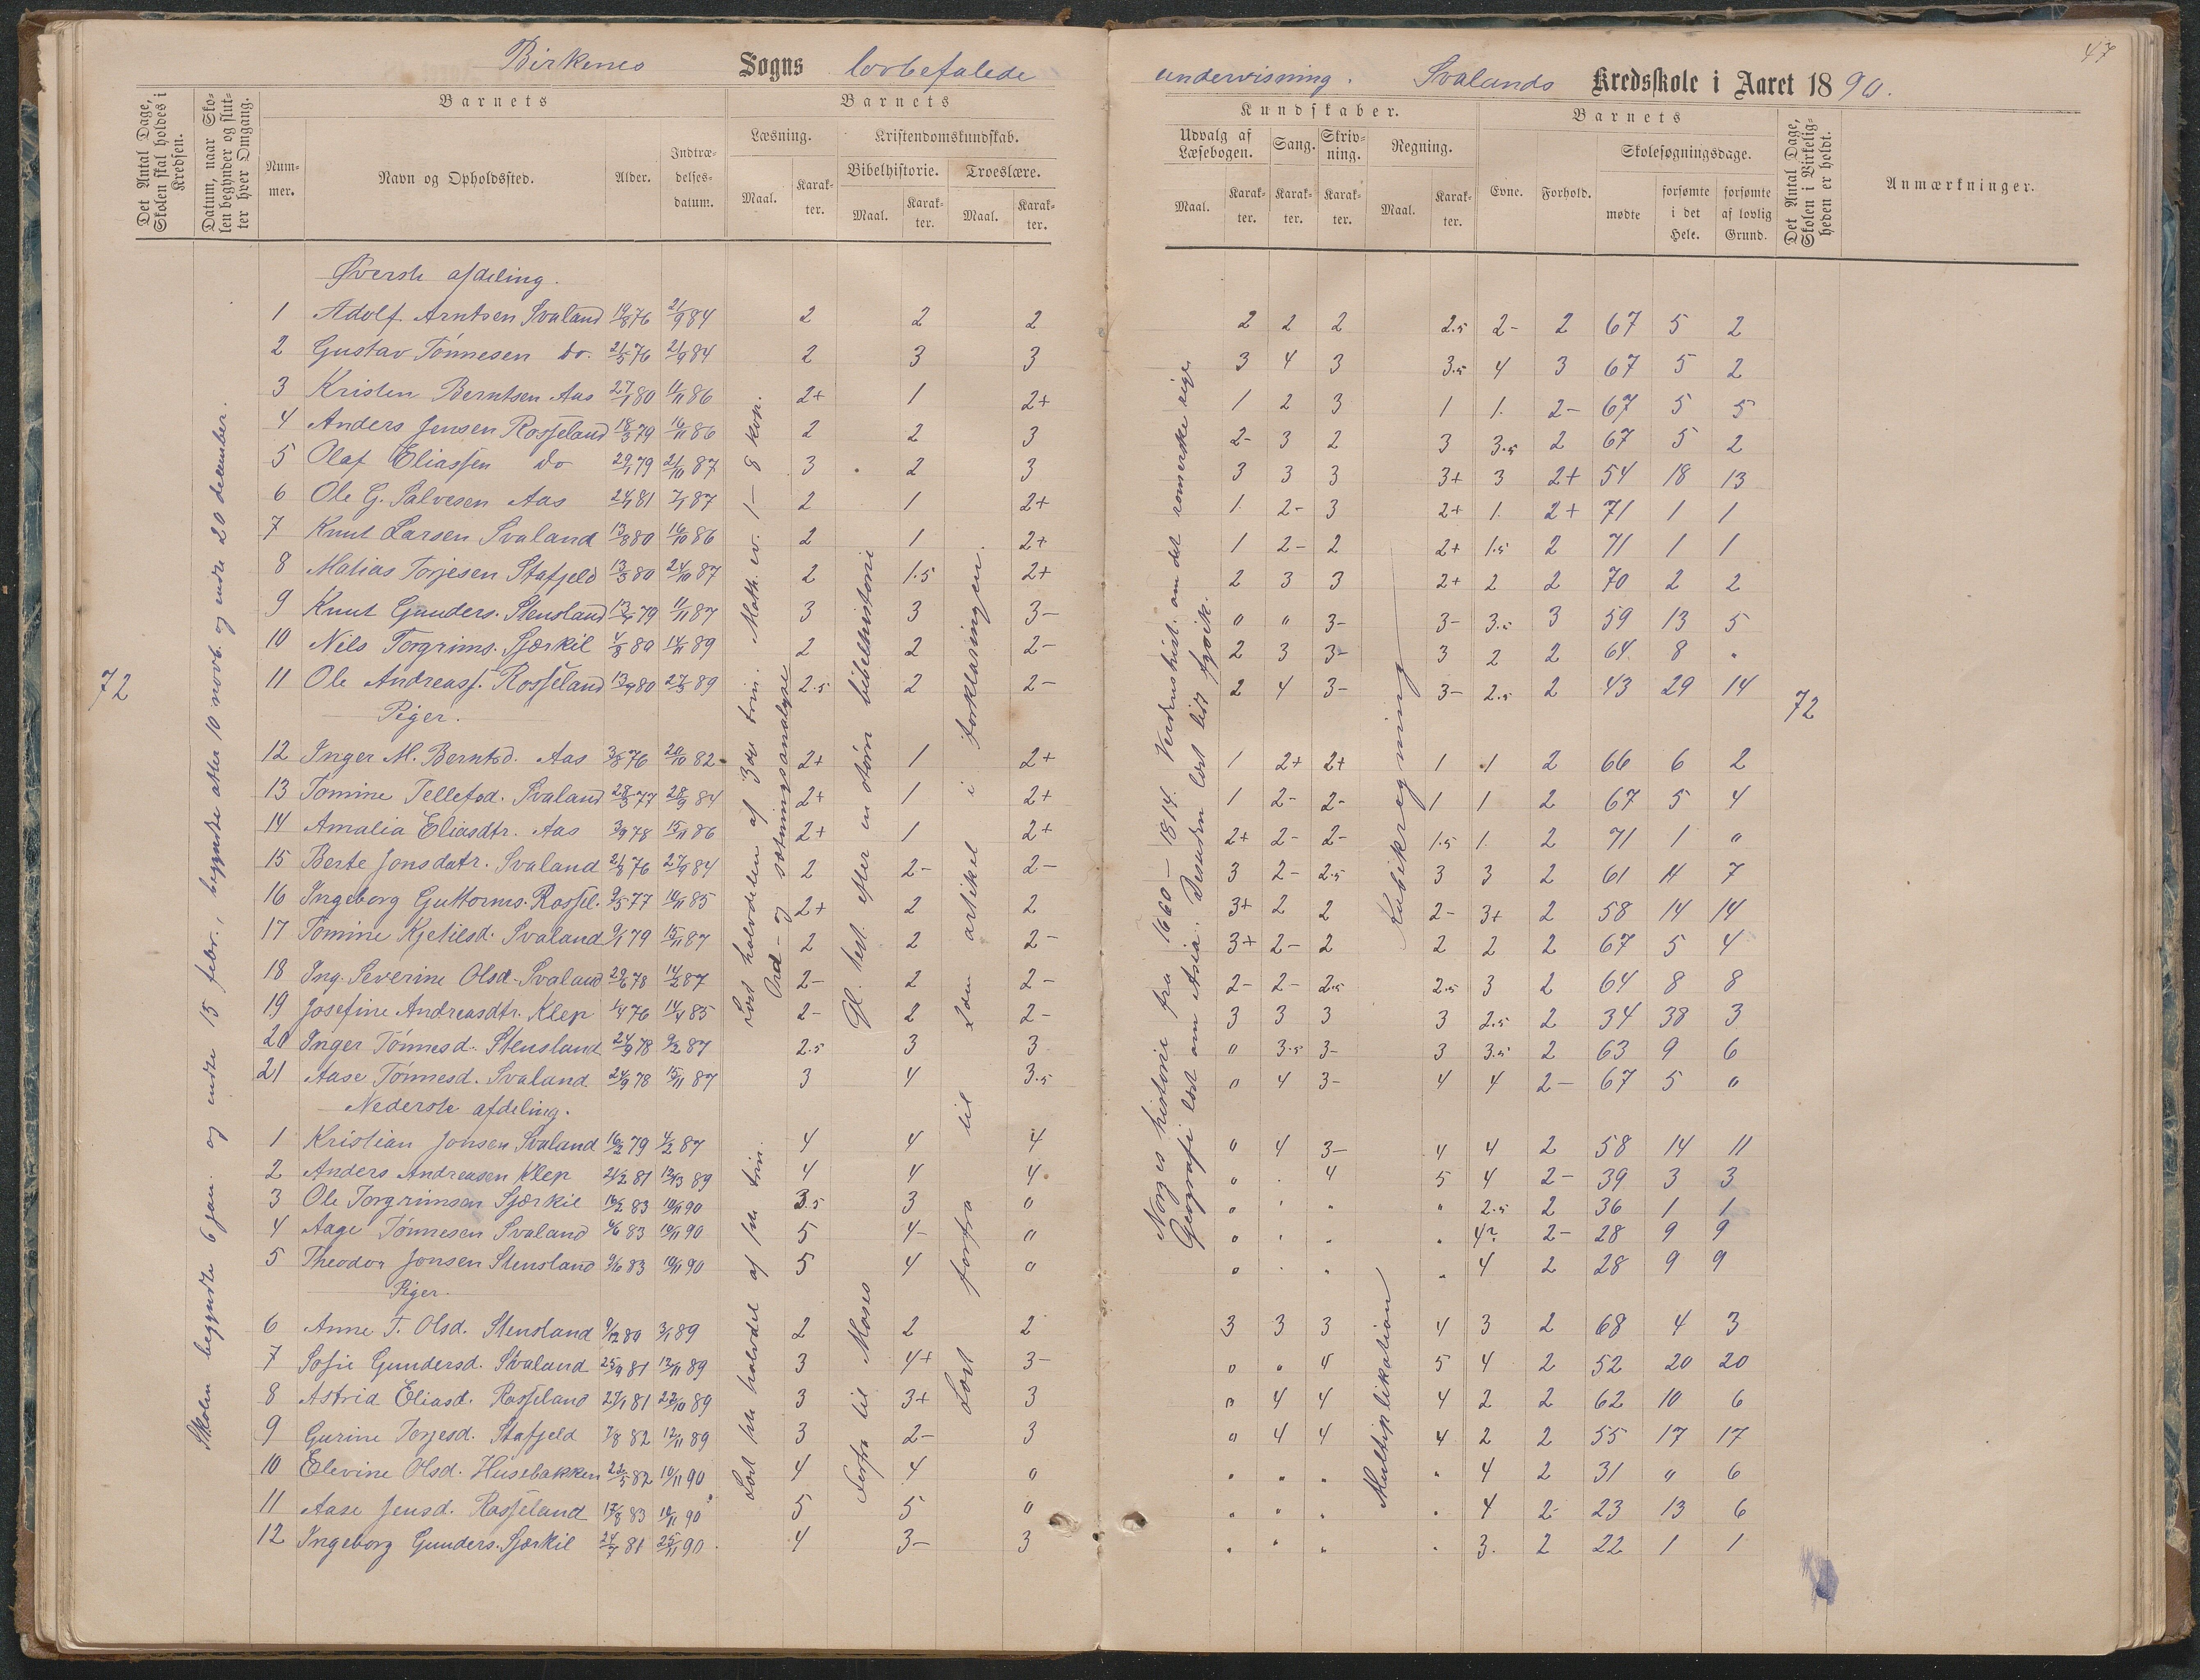 47
Birkenes Sogns lovbefalede undervisning. Svalands Kredsskole i Aaret 1890.
Det Antal Dage, Skolen skal holdes i Kredsen.
Datum, naar Skolen begynder og slutter hver Omgang.
Barnets
Nummer.
Navn og Opholdssted.
Alder.
Indtrædelsesdatum.
Barnets
Læsning.
Maal.
Karakter.
Kristendomskundskab.
Bibelhistorie.
Maal.
Karakter.
Troeslære.
Maal.
Karakter.
Kundskaber.
Udvalg af Læsebogen.
Maal.
Karakter.
Sang.
Karakter.
Skrivning.
Karakter.
Regning.
Maal.
Karakter.
Barnets
Evne.
Forhold.
Skolesøgningsdage.
mødte
forsømte i det Hele.
forsømte af lovlig Grund.
Det Antal Dage, Skolen i Virkeligheden er holdt.
Anmærkninger.
72
Skolen begyndte 6 jan. og endte 15 febr., begyndte atter 10 novb. og endte 20 december.
Øverste afdeling.
1 Adolf Arntsen Svaland 19/8 76 21/9 84 2 2 2 2 2 2 2.5 2- 2 67 5 2
2 Gustav Tønnesen do. 21/5 76 21/9 84 2 3 3 3 4 3 3.5 4 3 67 5 2
3 Kristen Berntsen Aas 27/1 80 11/11 86 2+ 1 2+ 1 2 3 1 1. 2- 67 5 5
4 Anders Jensen Rosseland 18/3 79 16/11 86 2 2 3 2- 3 2 3 3.5 2 67 5 2
5 Olaf Eliassen do 29/1 79 21/10 87 3 2 3 3 3 3 3+ 3 2+ 54 18 13
6 Ole G. Salvesen Aas 24/1 81 7/1 87 2 1 2+ 1. 2- 3 2+ 1. 2+ 71 1 1
7 Knut Larsen Svaland 13/8 80 16/10 86 2 1 2+ 1 2- 2 2+ 1.5 2 71 1 1
8 Matias Torjesen Stafjeld 13/3 80 24/10 87 2 1.5 2+ 2 3 3 2+ 2 2 70 2 2
9 Knut Gunders. Stensland 13/4 79 11/11 87 3 3 3- " " 3- 3- 3.5 3 59 13 5
10 Nils Torgrims. Sjærkil 4/3 80 14/11 89 2 2 2- 2 3 3- 3 2 2 64 8 "
11 Ole Andreass. Rosseland 13/9 80 27/3 89 2.5 2 2- 2 4 3- 3- 2.5 2 43 29 14
Piger.
12 Inger M. Berntsd. Aas 3/8 76 20/10 82 2+ 1 2+ 1 2+ 2+ 1 1 2 66 6 2
13 Tomine Tellefsd. Svaland 28/3 77 28/9 84 2+ 1 2+ 1 2- 2- 1 1 2 67 5 4
14 Amalia Eliasdtr. Aas 3/9 78 15/11 86 2+ 1 2+ 2+ 2- 2- 1.5 1. 2 71 1 "
15 Berte Jonsdatr. Svaland 21/8 76 27/9 84 2 2- 2- 3 2- 2.5 3 3 2 61 11 7
16 Ingeborg Guttorms. Rossel. 9/5 77 10/11 85 2+ 2 2 3+ 2 2 2- 3+ 2 58 14 14
17 Tomine Kjetilsd. Svaland 9/1 79 15/11 87 2 2 2- 3+ 2- 2 2 2 2 67 5 4
18 Ing. Severine Olsd. Svaland 29/6 78 14/2 87 2- 2 2- 2- 2- 2.5 2.5 3 2 64 8 8
19 Josefine Andreasdtr. Klep 1/4 76 14/4 85 2- 2 2- 3 3 3 3 2.5 2 34 38 3
20 Inger Tønnesd. Stensland 24/9 78 9/2 87 2.5 3 3 " 3.5 3- 3 3.5 2 63 9 6
21 Aase Tønnesd. Svaland 24/9 78 15/11 87 3 4 3.5 " 4 3- 4 4 2- 67 5 "
Nederste afdeling.
1 Kristian Jonsen Svaland 16/2 79 4/2 87 4 4 4 " 4 3- 4 4 2 58 14 11
2 Anders Andreasen Klep 21/2 81 13/3 89 4 4 4 " . 4 5 4 2- 39 3 3
3 Ole Torgrimsen Sjærkil 16/2 83 10/11 90 3.5 3 " " " " " 2.5 2 36 1 1
4 Aage Tønnesen Svaland 4/6 83 10/11 90 5 4- " " " " " 4? 2- 28 9 9
5 Theodor Jonsen Stensland 9/6 83 10/11 90 5 4 " " " " " 4 2 28 9 9
Piger.
6 Anne T. Olsd. Stensland 9/12 80 3/1 89 2 2 2 3 3 3 4 3 2 68 4 3
7 Sofie Gundersd. Svaland 25/9 81 12/11 89 3 4+ 3- " " 4 5 4 2 52 20 20
8 Astrid Eliasd. Rosseland 27/1 81 22/10 89 3 3+ 3 " 4 4 4 2 2 62 10 6
9 Gurine Torjesd. Stafjeld 7/8 82 12/11 89 3 2- 3 " 4 4 4 2 2 55 17 17
10 Elevine Olsd. Husebakken 22/5 82 10/11 90 4 4 " " " " " 4 2 31 " 6
11 Aase Jensd. Rosseland 17/8 83 10/11 90 5 5 " " " " " 4 2- 23 13 6
12 Ingeborg Gunders. Sjærkil 24/7 81 25/11 90 4 3- 3 " " " " 3. 2 22 1 1
Læst halvdelen af 3die trin. Math. ev. 1-8 kap.
Ord- og sætningsanalyse
Læst halvdel af trin.
Gl. test. efter en større bibelhistorie
Forfra til Moses
3die artikel i forklaringen.
Læst forfra til
Norges historie fra 1660-1814. Verdenshist. om det romerske rige
Geografi læst om Asia. Desuden læst lidt fysik.
Kubikregning
Multiplikation
72